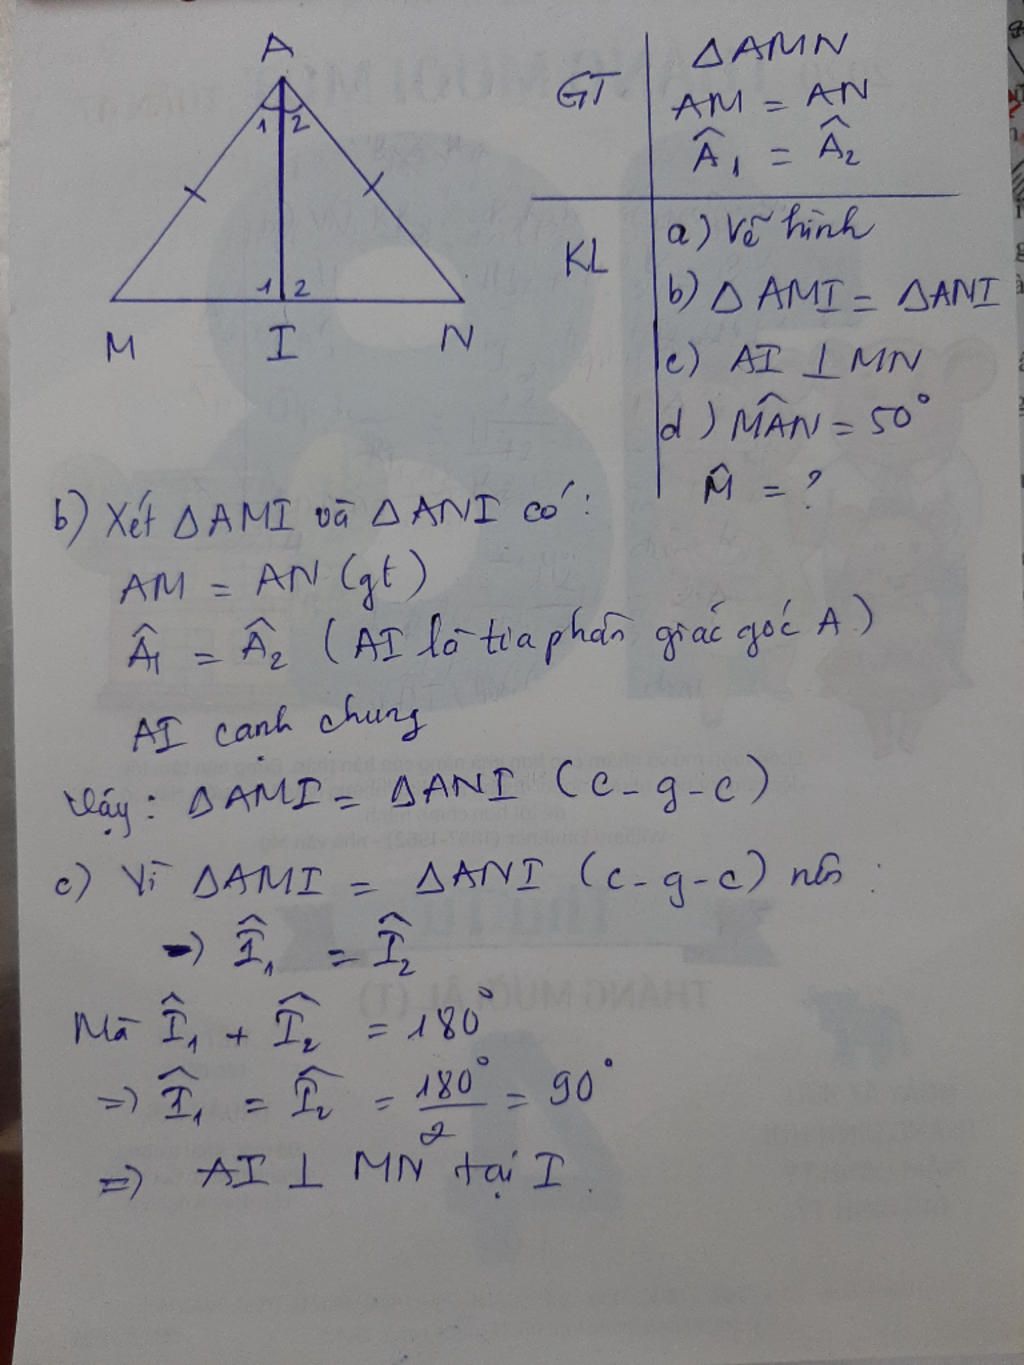 A
1 2
1 2
M I N
GT
ΔAMN
AM = AN
Â₁ = Â₂
KL
a) Vẽ hình
b) Δ AMI = ΔANI
c) AI ⊥ MN
d) MÂN = 50°
M̂ = ?
b) Xét ΔAMI và ΔANI có :
AM = AN (gt)
Â₁ = Â₂ (AI là tia phân giác góc A)
AI cạnh chung
Vậy : ΔAMI = ΔANI (c-g-c)
c) Vì ΔAMI = ΔANI (c-g-c) nên :
=> Î₁ = Î₂
Mà Î₁ + Î₂ = 180°
=> Î₁ = Î₂ = 180°/2 = 90°
=> AI ⊥ MN tại I.